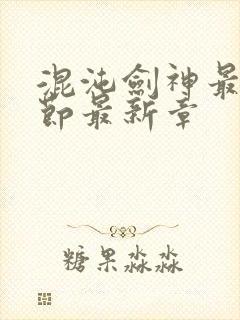 混沌劍神最
節最新章
糖果淼淼